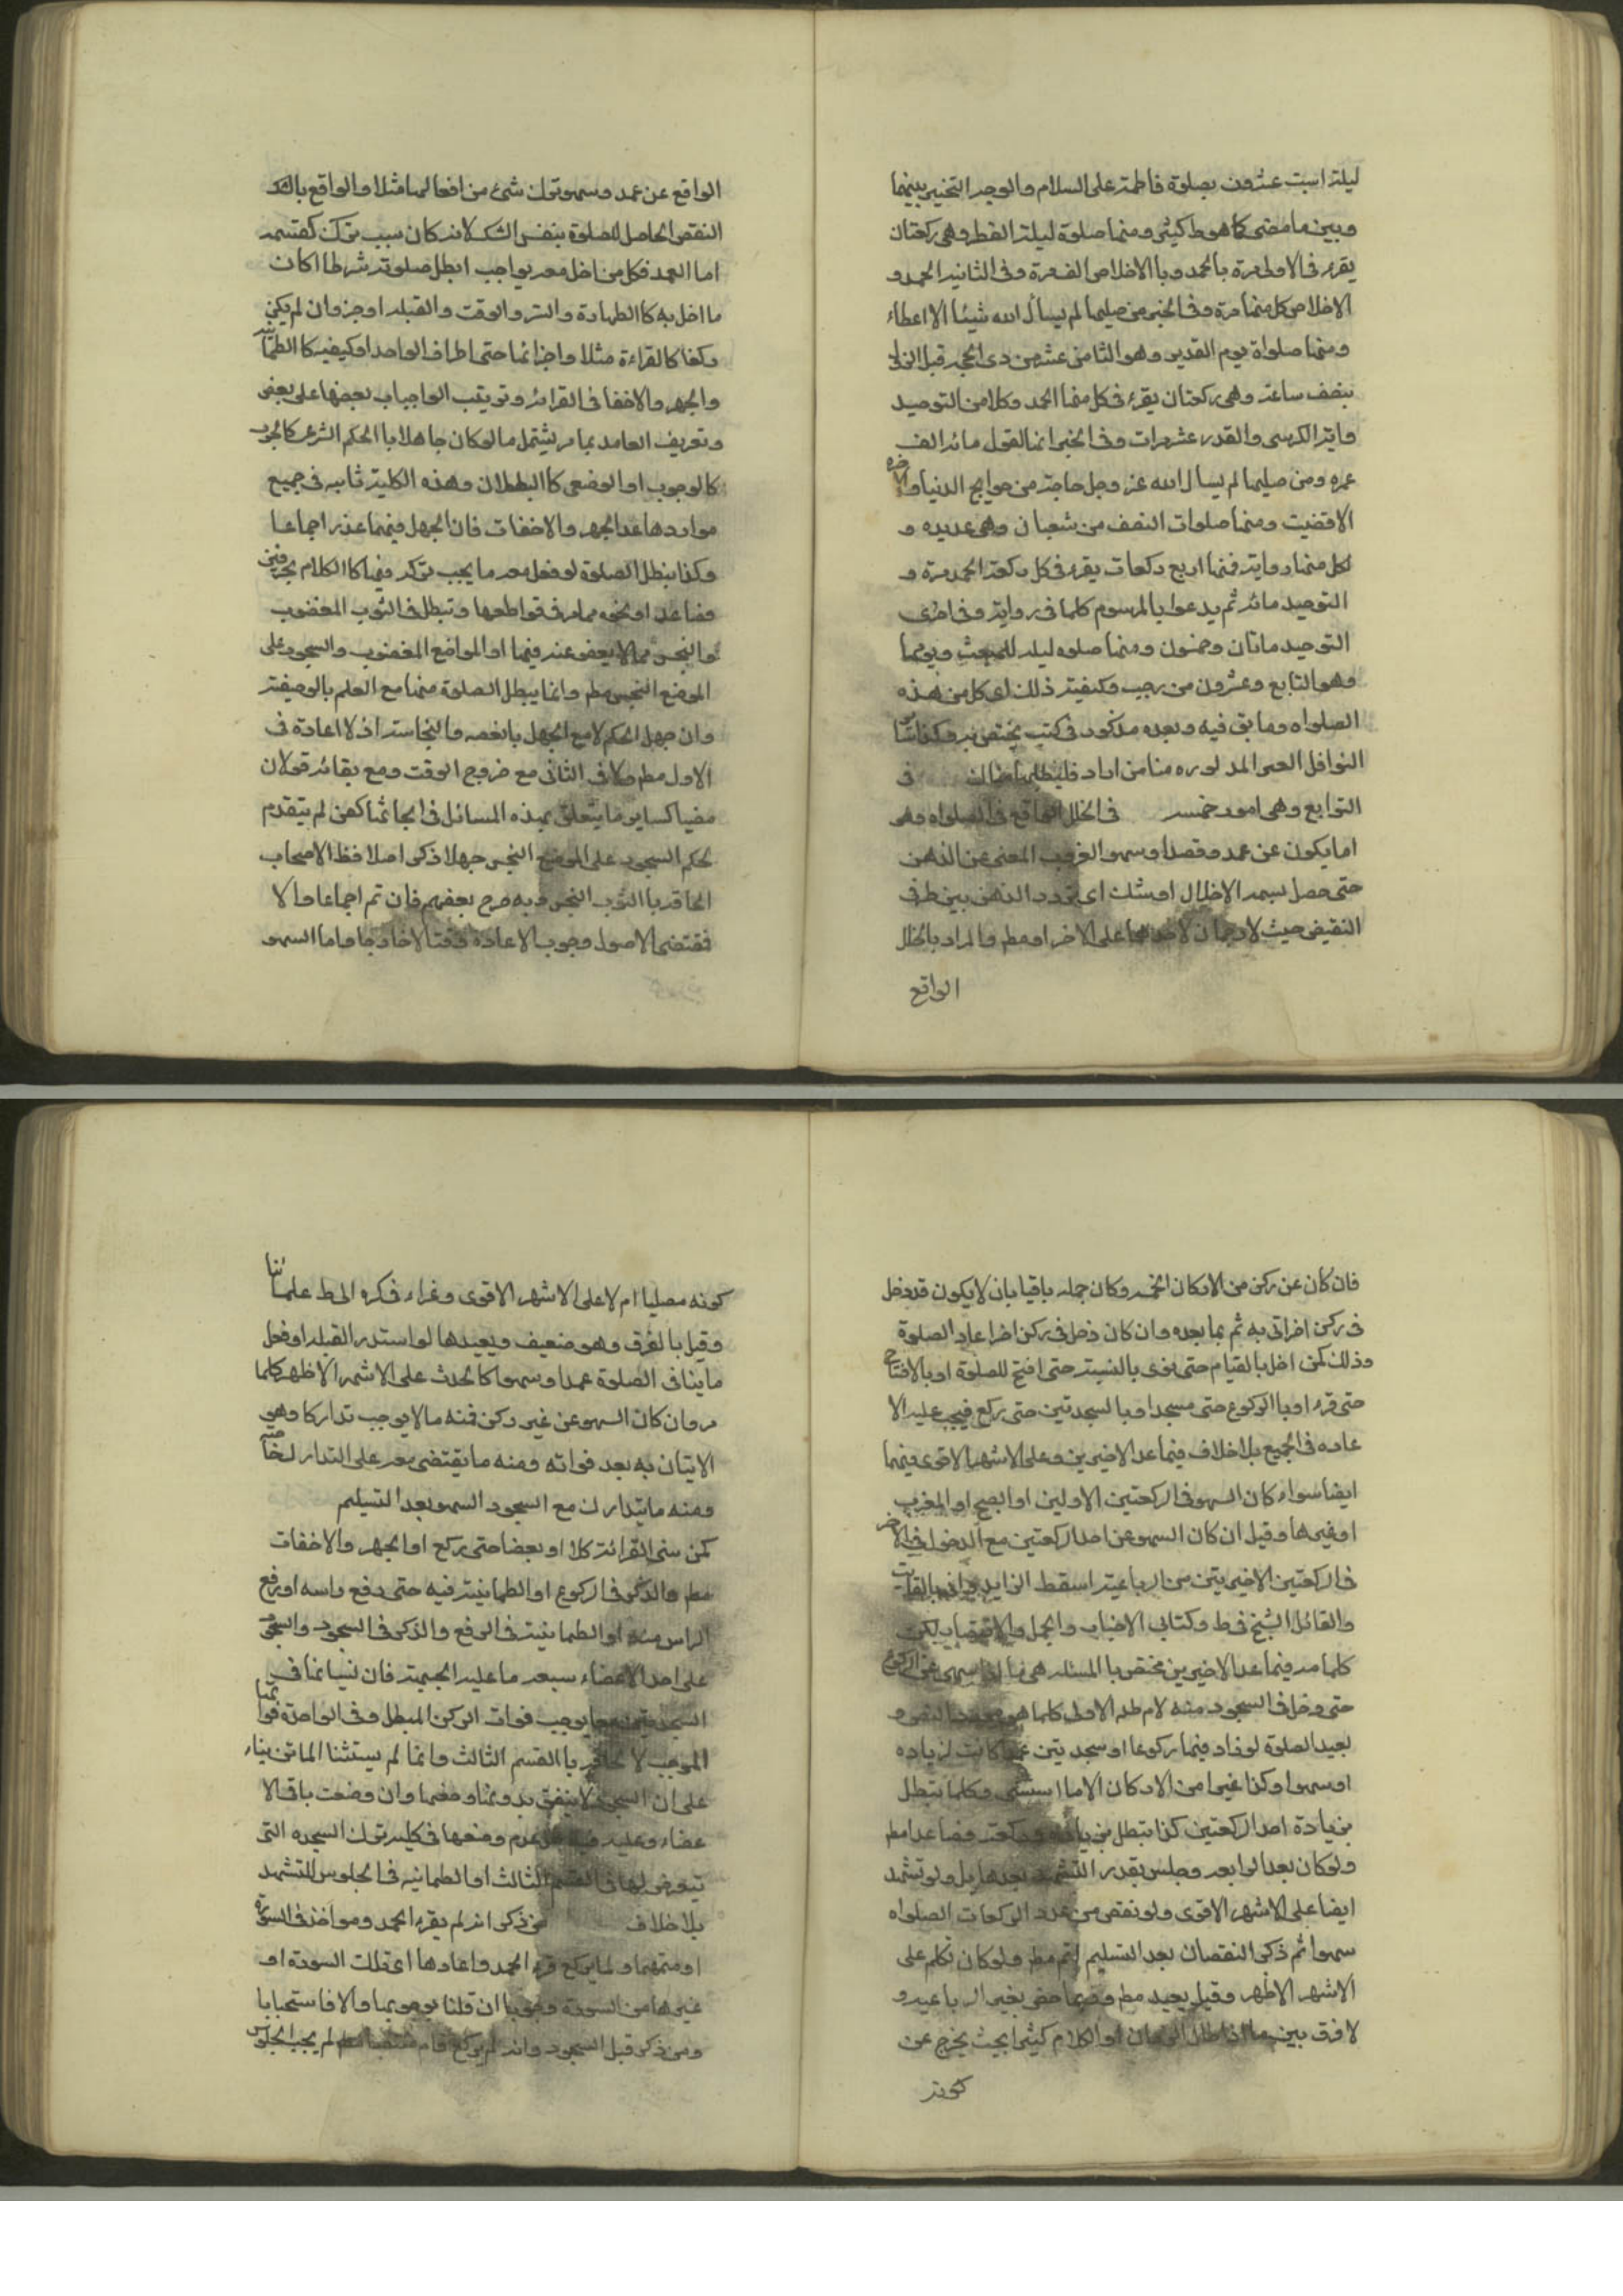 ليلة السبت عشرون بصلوة فاطمة على السلام والوجه التخيير بينهما
وبين ما مضى كما هو ط كيثر ومنها صلوة ليلة الفطر وهى ركعتان
يقرء فى الاولى مرة بالحمد وبا الاخلاص الف مرة وفى الثانية الحمد و
الاخلاص كل منهما مرة وفى الخبر من صليها لم يسأل الله شيئا الا اعطاء
ومنها صلواة يوم الغدير وهو الثامن عشر من ذى الحجه قبل الزوال
بنصف ساعة وهى ركعتان يقرء فى كل منهما الحمد وكلا من التوحيد
واية الكرسى والقدر عشر مرات وفى الخبر انها تعدل مائه الف
عمره ومن صليها لم يسال الله عز وجل حاجة من حوايج الدنيا والاخره
الا قضيت ومنها صلوات النصف من شعبان وهى عديده و
لكل منها رواية فمنها اربع ركعات يقرء فى كل ركعة الحمد مرة و
التوحيد مائه ثم يدعوا بالمرسوم كلما فى رواية وفى اخرى
التوحيد ماتان وخمسون ومنها صلوه ليله المبعث ويومها
وهو السابع وعشرون من رجب وكيفية ذلك اى كل من هذه
الصلواه وما بقى فيه وبعده مذكور فى كتب يختص به وكذا سائر
النوافل الغير المذكوره منا من اراد فليطلبها هناك فى
التوابع وهى امور خمسه فى الخلل الواقع فى الصلواه وهو
اما يكون عن عمد وقصد او سهو العزوب المعنى عن الذهن
حتى حصل بسببه الاخلال او شك اى تردد الذهن بين طرفى
النقيض حيث لا رجحان لاحدهما على الاخر او مط والمراد بالخلل
الواقع
الواقع عن عمد وسهو ترك شىء من افعالها مثلا والواقع بالشك
النقص الحاصل للصلوة بنفس الشك لانه كان سبب ترك كقسيمه
اما العمد فكل من اخل معه بواجب ابطل صلوته شرطا اكان
ما اخل به كا الطهارة والستر والوقت والقبله او جزء وان لم يكن
ركنا كالقراءة مثلا واجزائها حتى اطراف الواحد او كيفيه كا الطمأنينة
والجهر والاخفا فى القرائه وترتيب الواجبات بعضها على بعض
وتعريف العامد بما مر يشتمل ما لو كان جاهلا با الحكم الشرعى
كالوجوب او الوضعى كا البطلان وهذه الكلية ثابته فى جميع
مواردها عدا الجهر والاخفات فان الجهل فيهما عذر اجماعا
وكذا يبطل الصلوة لو فعل معه ما يجب تركه فيها كا الكلام بحرفين
فصاعدا ونحوه مما مر فى قواطعها وتبطل فى الثوب المغضوب
والنجس مما لا يعفو عنه فيها او المواضع المغضوب والسجود على
الموضع النجس مط وانما يبطل الصلوة منها مع العلم بالوصفية
وان جهل الحكم لا مع الجهل بالغصبه والنجاسة اذ لا اعادة فى
الاول مط ولا فى الثانى مع خروج الوقت ومع بقائه قولان
مضيا كساير ما يتعلق بهذه المسائل فى ابحاثها لكن لم يتقدم
لحكم السجود على الموضع النجس جهلا ذكر اصلا فظ الاصحاب
الحاقه با الثوب النجس وبه صرح بعضهم فان تم اجماعا والا
فقتضى الاصول وجوب الاعادة وقتا لا خارجا واما السهو
فان كان عن ركن من الاركان الخمسه وكان محله باقيا بان لا يكون قد دخل
فى ركن اخر اتى به ثم بما بعده وان كان دخل فى ركن اخر اعاد الصلوة
وذلك كمن اخل بالقيام حتى نوى بالنسبة حتى افتتح للصلوة او بالافتتاح
حتى قرء او با الركوع حتى سجد او بالسجدتين حتى ركع فيجب عليه الا
عاده فى الجميع بلا خلاف فيما عدا الاخيرين وعلى الاشهر الاقوى فيهما
ايضا سواء كان السهو فى الركعتين الاولين او الصبح او المغرب
او غيرها وقيل ان كان السهو عن احد الركعتين مع الدخول فى الاخر
فى الركعتين الاخيريتين من الرباعية اسقط الزايد واتى بالفائت
والقائل الشيخ فى ط وكتابى الاخبار والجمل والاقتصاد لكن
كلامه فيما عدا الاخيرين مختص با المسئله هى ما اذا سهى عن الركوع
حتى دخل فى السجود
يعيد الصلوة لو زاد فيها ركوعا او سجدتين عمدا كانت الزياده
او سهوا وكذا غيرها من الاركان الا ما استثنى وكلما تبطل
بزيادة احد الركعتين كذا تبطل بزيادة ركعة فصاعدا مط
ولو كان بعد الرابعه وجلس بقدر التشهد بعدها بل ولو تشهد
ايضا على الاشهر الاقوى ولو نقص من عدد الركعات الصلواه
سهوا ثم ذكر النقصان بعد التسليم اتم مط ولو كان تكلم على
الاشهر الاظهر وقيل يعيد مط وربما خص بغير الرباعيه و
لا فرق بين ما اذا طال الزمان او الكلام كيثرا بحيث يخرج عن
كونه
كونه مصليا ام لا على الاشهر الاقوى وغراء فكره الى ط علمائنا
وقيل بالفرق وهو ضعيف ويعيدها لو استدبر القبله او فعل
ما ينافى الصلوة عمدا وسهوا كا لحدث على الاشهر الاظهر كلما
مر وان كان السهو عن غير ركن فمنه ما لا يوجب تداركا وهو
الاتيان به بعد فواته ومنه ما يقتضى معه على التدارك خاصه
ومنه ما يتدارك مع السجود السهو بعد التسليم
كمن نسى القرائة كلا او بعضا حتى يركع او الجهر والاخفات
مط والذكر فى الركوع او الطمانينة فيه حتى رفع راسه او رفع
الراس منه او الطمانينة فى الرفع والذكر فى السجود والسجود
على احد الاعضاء سبعه ما عليه الجبهة فان نسيانها فى
السجدتين معا يوجب فوات الركن المبطل وفى الواحدة فواتها
الموجب با القسم الثالث وانما لم يستثنا الماتن بناء
على ان السجود لا يتفق بدونها وضعها وان وضعت باقى الا
عضاء وعليه عدم وضعها فى كليه ترك السجده التى
تيعرض لها فى القسم الثالث او الطمانينه فى الجلوس للتشهد
بلا خلاف من ذكر انه لم يقرء الحمد وهو اخذ فى السورة
او متمهما ولما يركع قرء الحمد واعادها اى تلك السورة او
غيرها من السورة وجوبا ان قلنا بوجوبها والا فاستحبابا
ومن ذكر قبل السجود وانه لم يركع قام لم يجب الجلوس